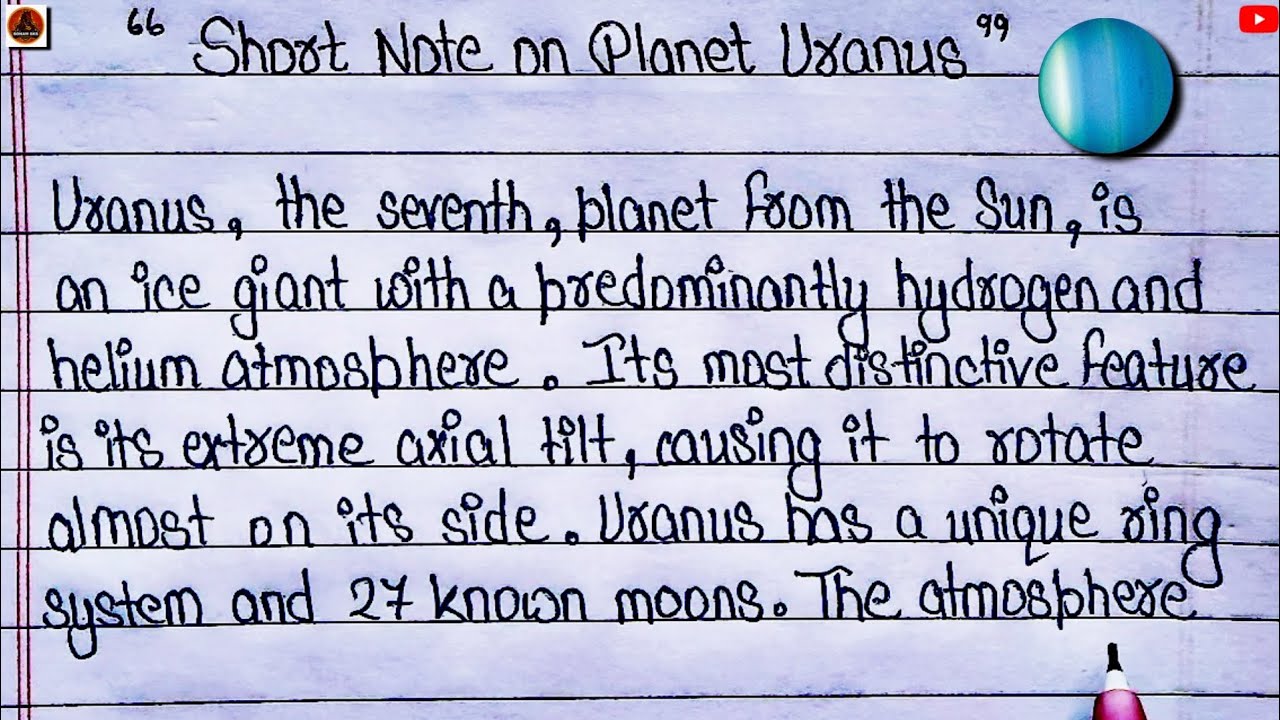 “ Short Note on Planet Uranus ”
Uranus, the seventh, planet from the Sun, is
an ice giant with a predominantly hydrogen and
helium atmosphere. Its most distinctive feature
is its extreme axial tilt, causing it to rotate
almost on its side. Uranus has a unique ring
system and 27 known moons. The atmosphere